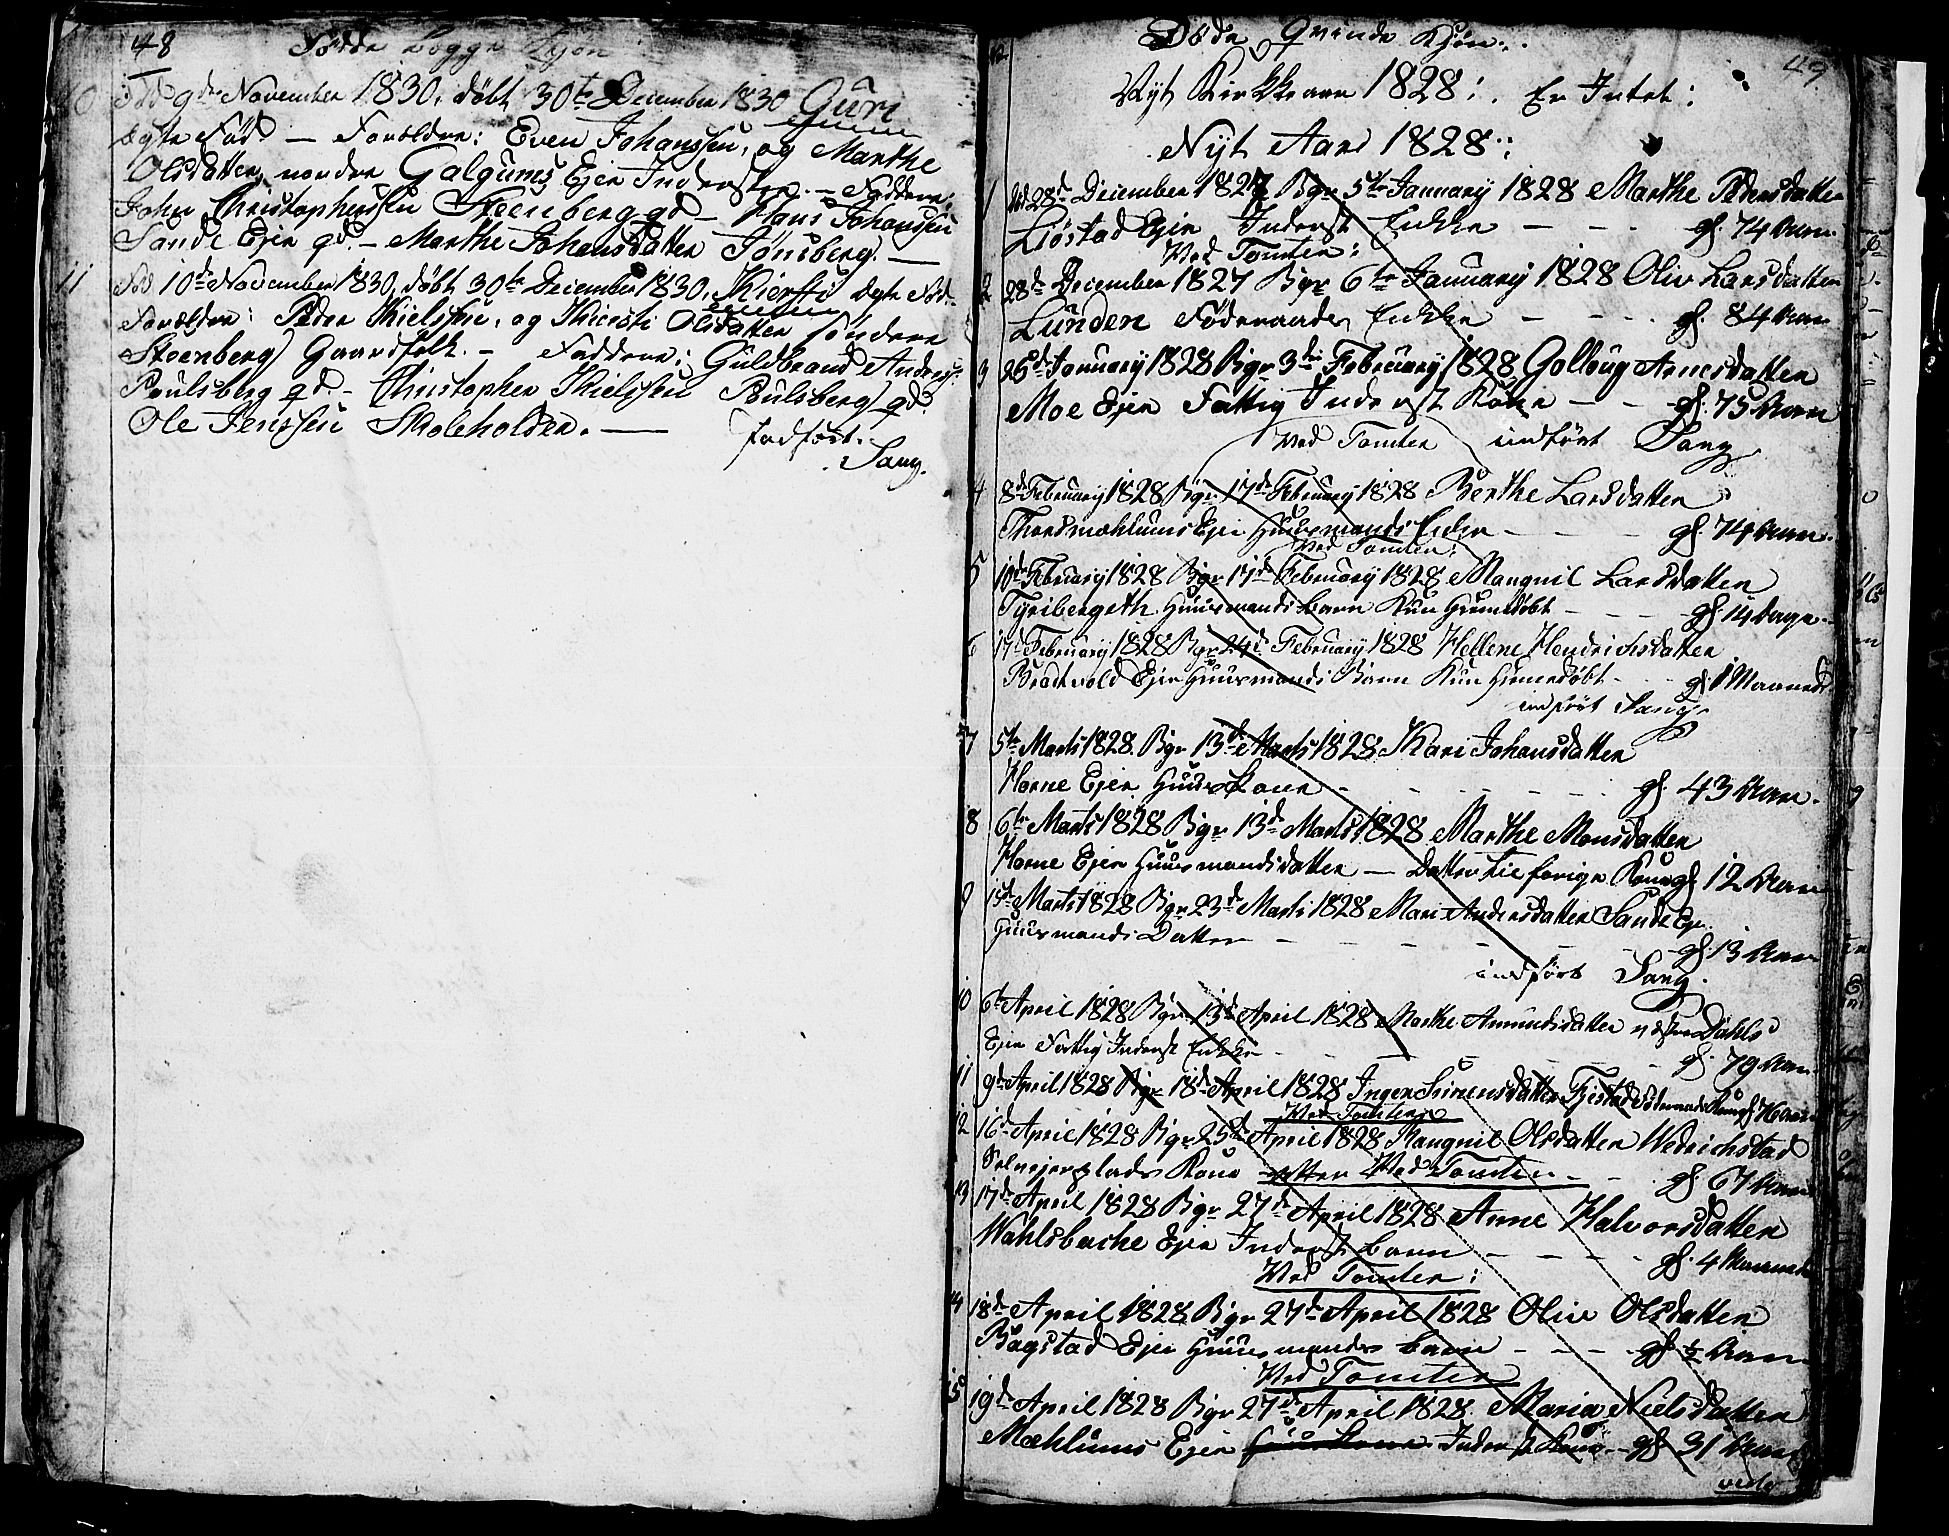 48
Fødde begge Kjøn
10 Fød 9de November 1830, døbt 30te December 1830 Guri
ægte Fød — Forældre: Even Johanssen, og Marthe
Olsdatter, nordre Galgums Ejer Inderster. — Faddere:
John Christophersen Steenberg gd — Hans Johanssen
Sande Ejer gd. — Marthe Johansdatter Jønsberg. —
11 Fød 10de November 1830, døbt 30te December 1830, Kiersti ægte Fød
Forældre: Peder Kielssen, og Kiersti Olsdatter søndere
Steenberg Gaardfolk. — Faddere: Guldbrand Anders:
Poulsberg gd. — Christopher Kielssen Poulsberg gd.
Ole Jenssen Skoleholder. —
Indført.
Sang.
Døde Qvinde Kjøn:.
49
Nyt Kirkkeaar 1828:. Er Intet:
Nyt Aard 1828:
1 Død 28de December 1827 Bgr 5te January 1828 Marthe Pedersdatter
Liøstad Ejer Inderst Enkke — — gl. 74 Aar
Ved Tomten:
2 28de December 1827 Bgr 6te January 1828 Oliv Larsdatter
Lunden Føderaads Enkke — — gl. 84 Aar
3 26de January 1828 Bgr 3die February 1828 Golloug Arnesdatter
Moe Ejer Fattig Inderst Kone — — gl. 75 Aar
Ved Tomten indført Sang
4 8de February 1828 Bgr 17de February 1828 Berthe Larsdatter
Thordmæhlums Ejer Huusmands Enke — — gl. 74 Aar.
Ved Tomten:
5 10de February 1828 Bgr 17de February 1828 Mangnil Larsdatter
Tyribergeth Huusmands barn Kun Hiemdøbt — — gl. 14 Dage
6 17de February 1828 Bgr 24de February 1828 Hellene Hendrichsdatter
Bradtvold Ejer Huusmands Barn Kun Hiemdøbt — gl. 1 Maaned
indført Sang
7 5te Marts 1828 Bgr 13de Marts 1828 Kari Johansdatter
Horne Ejer Huuskone — — gl. 43 Aar.
8 6te Marts 1828 Bgr 13de Marts 1828 Marthe Monsdatter
Horne Ejer Huusmandsdatter — Datter til forige Kone gl 12 Aar
9 15de Marts 1828 Bgr 23de Marts 1828 Mari Andersdatter Sande Ejr.
Huusmands Datter — — gl. 13 Aar
indført Sang.
10 6te April 1828 Bgr. 13de April 1828 Marthe Amundsdatter Dahls
Ejer Fattig Inderst Enkke — — gl. 79 Aar
11 9de April 1828 Bgr 18de April 1828 Inger Simensdatter Fjestad Føderaads Kone gl
Ved Tomten
12 16de April 1828 Bgr 25de April 1828 Rangnil Olsdatter Wedrichstad
Selvejerplads Kone Ved Tomten — gl. 67 Aar
13 17de April 1828 Bgr 27de April 1828 Anne Halvorsdatter
Wahlsbache Ejer Inderst barn — — gl. 4 Maaneder
Ved Tomten:
14 18de April 1828 Bgr 27de April 1828 Oliv Olsdatter
Bagstad Ejer Huusmands barn — — gl ½ Aar
Ved Tomten
15 19de April 1828 Bgr 27de April 1828. Maria Nielsdatter
Mæhlums Ejer Inderst Kone — gl. 31 Aar